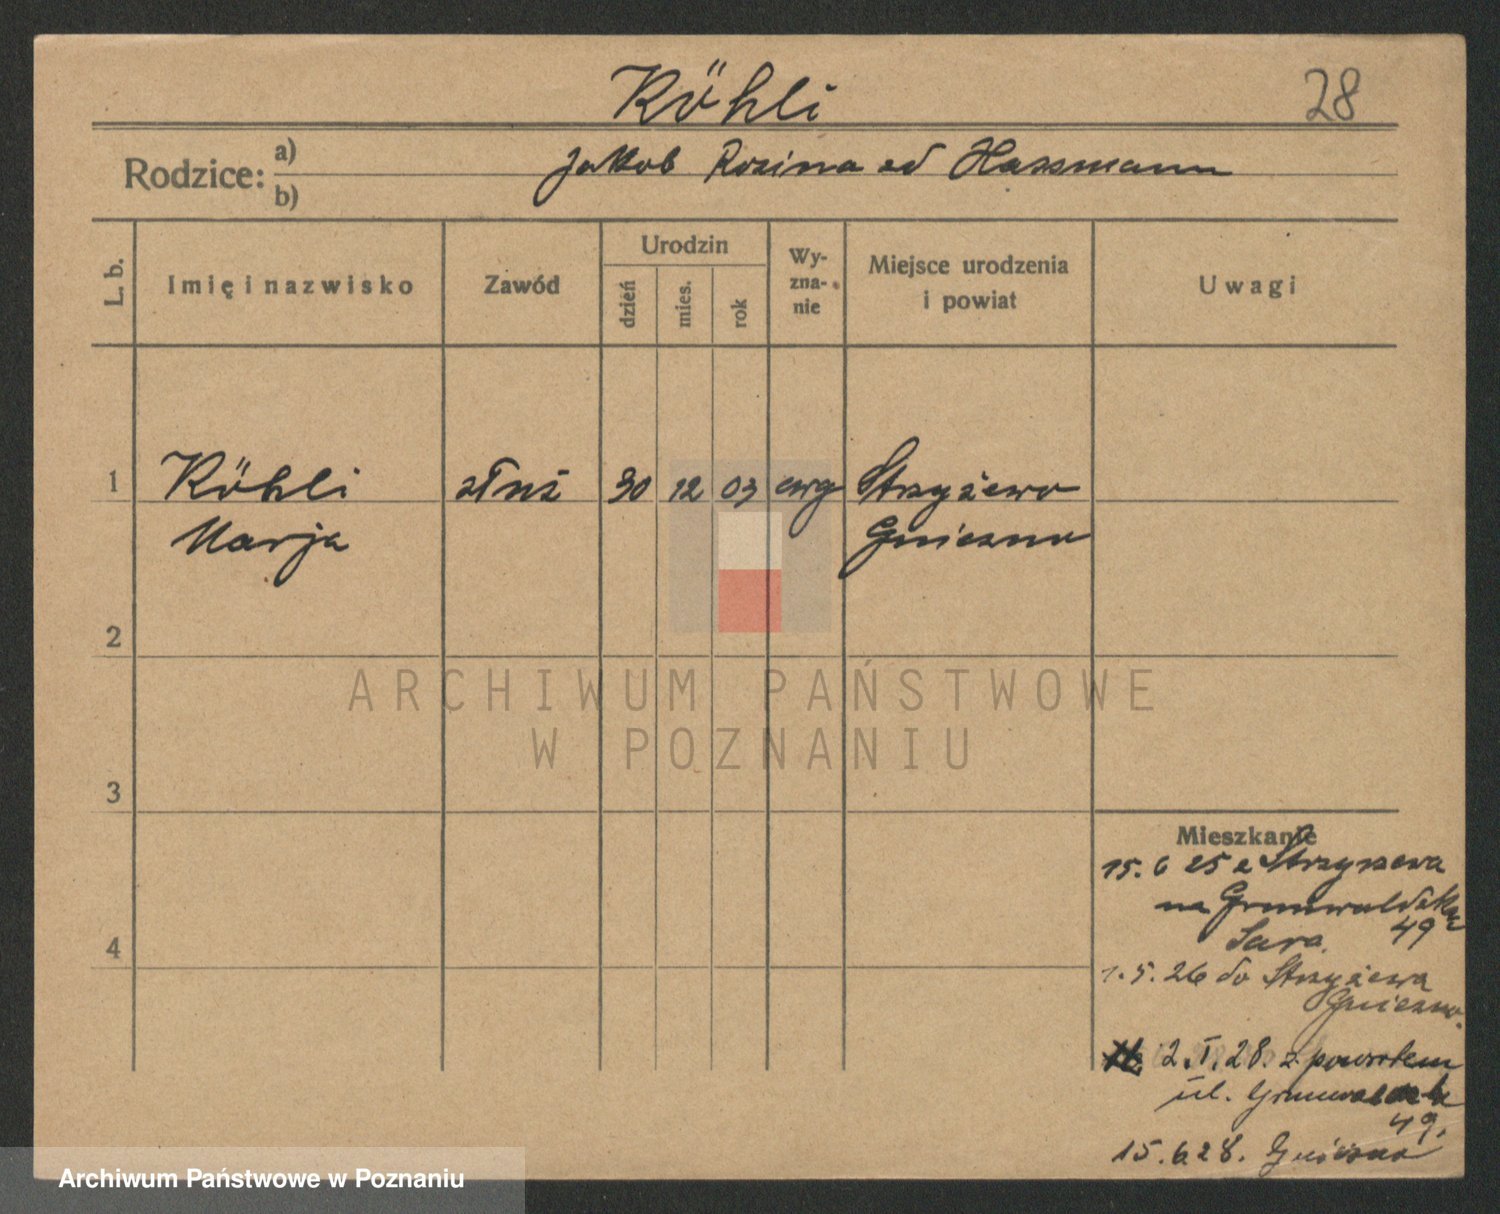 Köhli
28
Rodzice: a)
b)
Jakob Rozina od Hassmann
L. b.
Imię i nazwisko
Zawód
Urodzin
dzień
mies.
rok
Wy-
zna-
nie
Miejsce urodzenia
i powiat
Uwagi
1
Köhli
służ
30
12
03
ewg
Strzyżewo
Marja
Gniezno
2
ARCHIWUM PAŃSTWOWE
W POZNANIU
3
Mieszkanie
15. 6 25 z Strzyżewa
na Grunwaldzka
49
4
1. 5. 26 do Strzyżewa
Gniezno.
2. I. 28. z powrotem
ul. Grunwaldzka
49.
15. 6 28. Gniezno
Archiwum Państwowe w Poznaniu